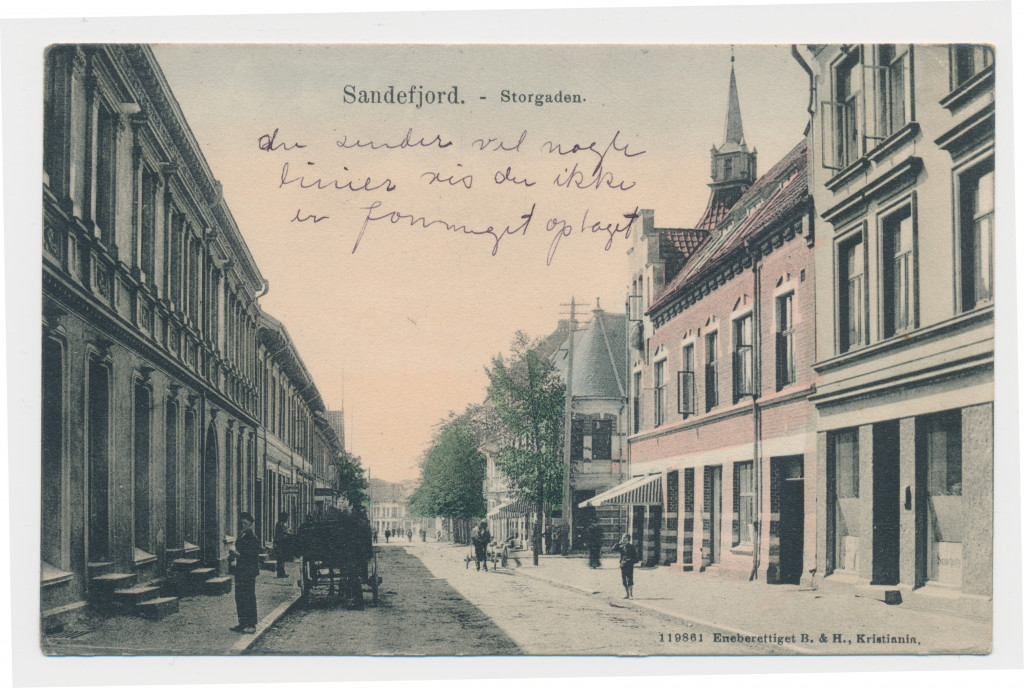 Sandefjord. - Storgaden.
du sender vel nogle
linier vis du ikke
er formeget optaget
119861 Eneberettiget B. & H., Kristiania.